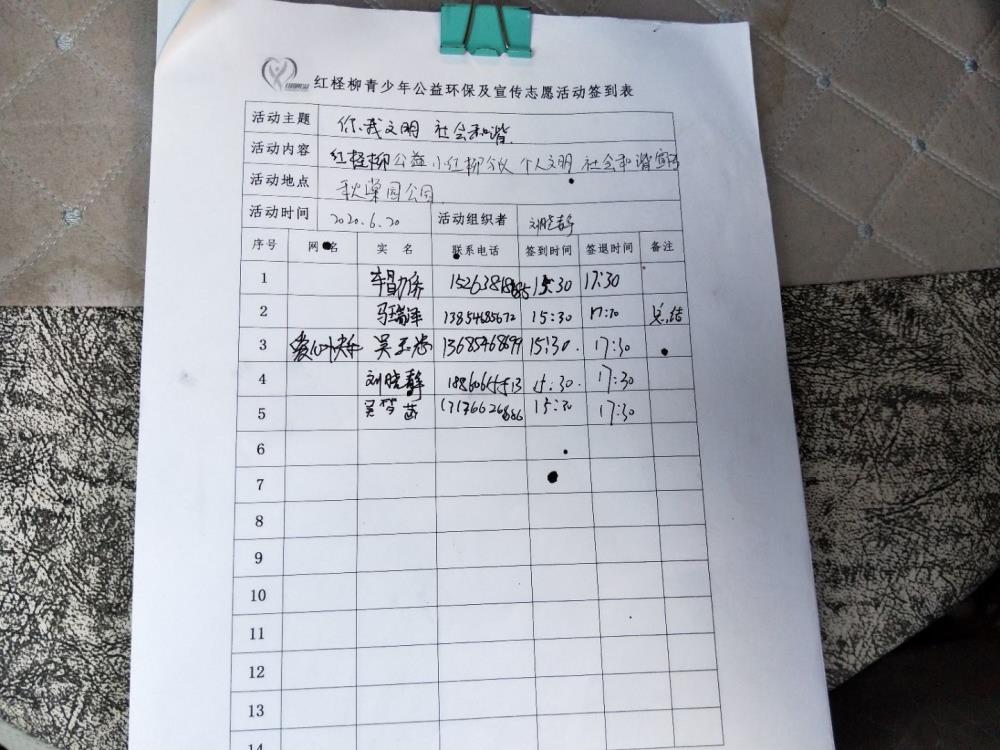 红柽柳青少年公益环保及宣传志愿活动签到表
活动主题 你我文明 社会和谐
活动内容 红柽柳公益小红柳 个人文明 社会和谐
活动地点 公园
活动时间 2020.6.20 活动组织者 刘晓静
序号 网名 实名 联系电话 签到时间 签退时间 备注
1 15:30 17:30
2 马瑞泽 13854685672 15:30 17:30 总结
3 爱心快车 13685468699 15:30. 17:30
4 刘晓静 15:30. 17:30
5 吴梦茜 15:30 17:30
6
7
8
9
10
11
12
13
14